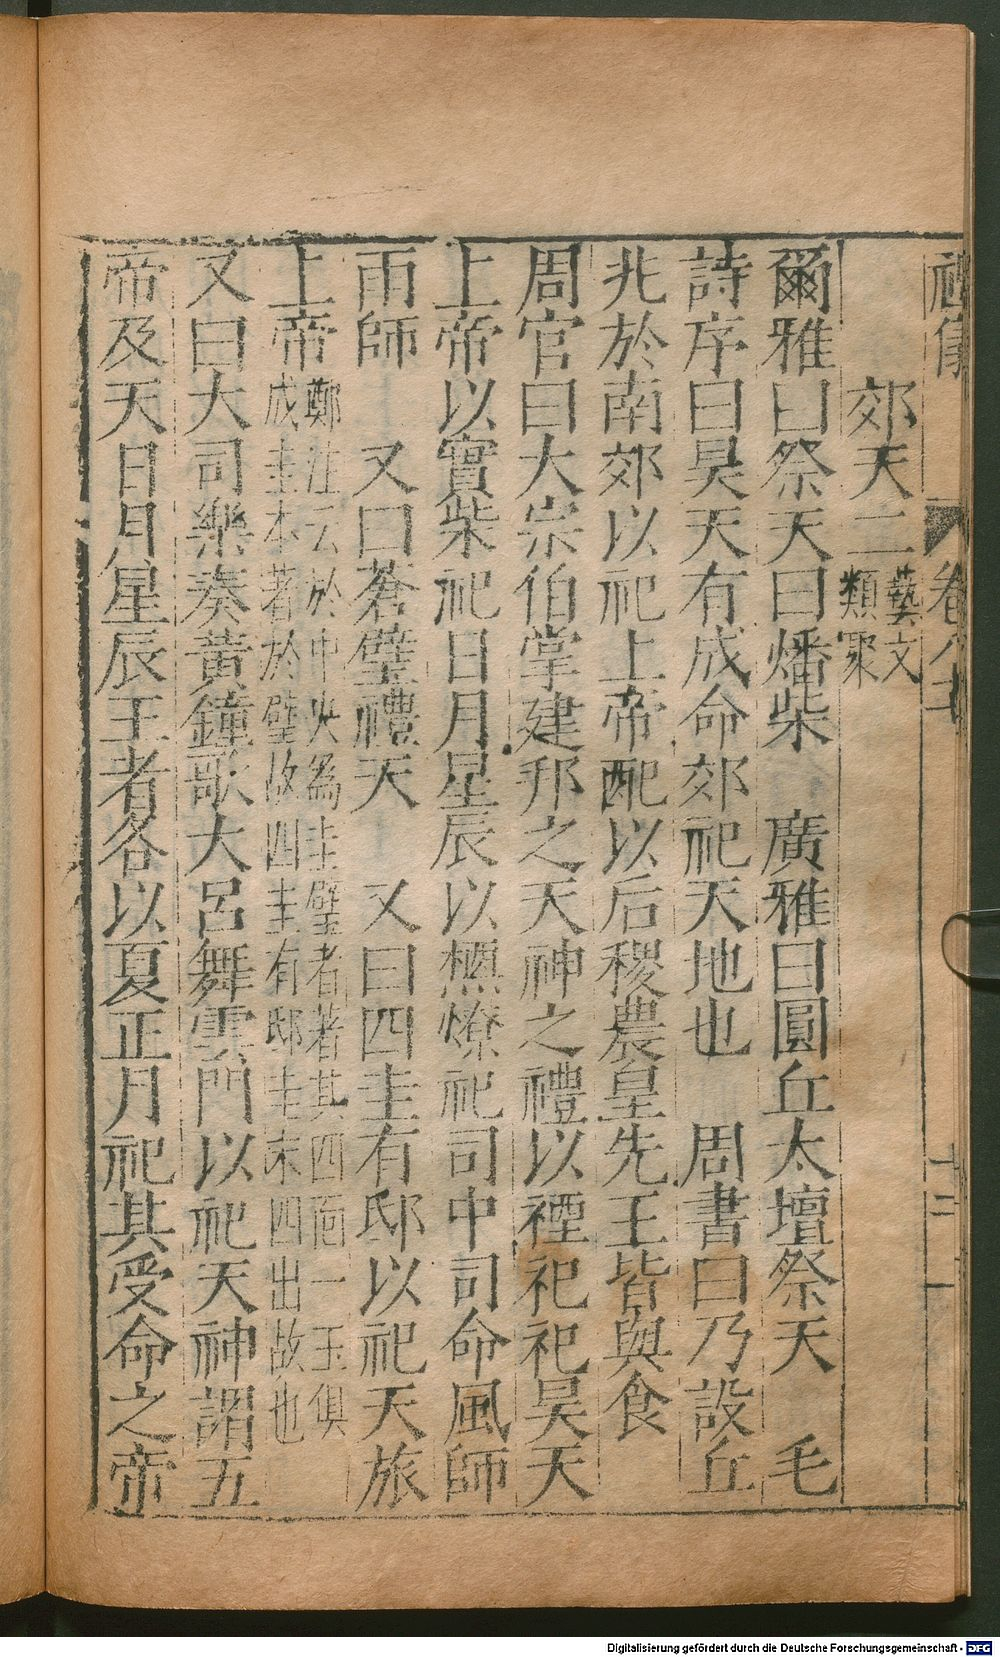 郊天二藝文類聚
爾雅曰祭天曰燔柴　廣雅曰圓丘太壇祭天　毛
詩序曰昊天有成命郊祀天地也　周書曰乃設丘
兆於南郊以祀上帝配以后稷農皇先王皆與食
周官曰大宗伯掌建邦之天神之禮以禋祀祀昊天
上帝以實柴祀日月星辰以槱燎祀司中司命風師
雨師　又曰蒼璧禮天　又曰四圭有邸以祀天旅
上帝鄭注云於中央為圭璧者著其四面一玉俱
成圭本著於璧故四圭有邸圭末四出故也
又曰大司樂奏黃鐘歌大呂舞雲門以祀天神謂五
帝及天日月星辰王者各以夏正月祀其受命之帝
Digitalisierung gefördert durch die Deutsche Forschungsgemeinschaft - DFG